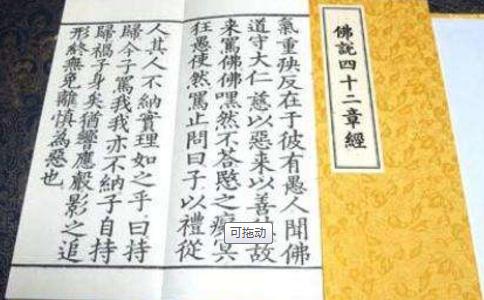 佛説四十二章經
氣重殃反在于彼有愚人聞佛
道守大仁慈以惡來以善往故
來罵佛佛嘿然不答愍之癡冥
狂愚使然罵止問曰子以禮從
人其人不納實理如之乎曰持
歸今子罵我我亦不納子自持
歸禍子身矣猶響應聲影之追
形終無免離慎為惡也
可拖动